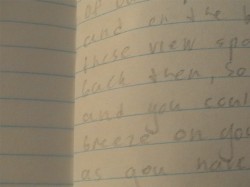 and on the
these view spo
back then, so
and you coul
breeze on you
as you have